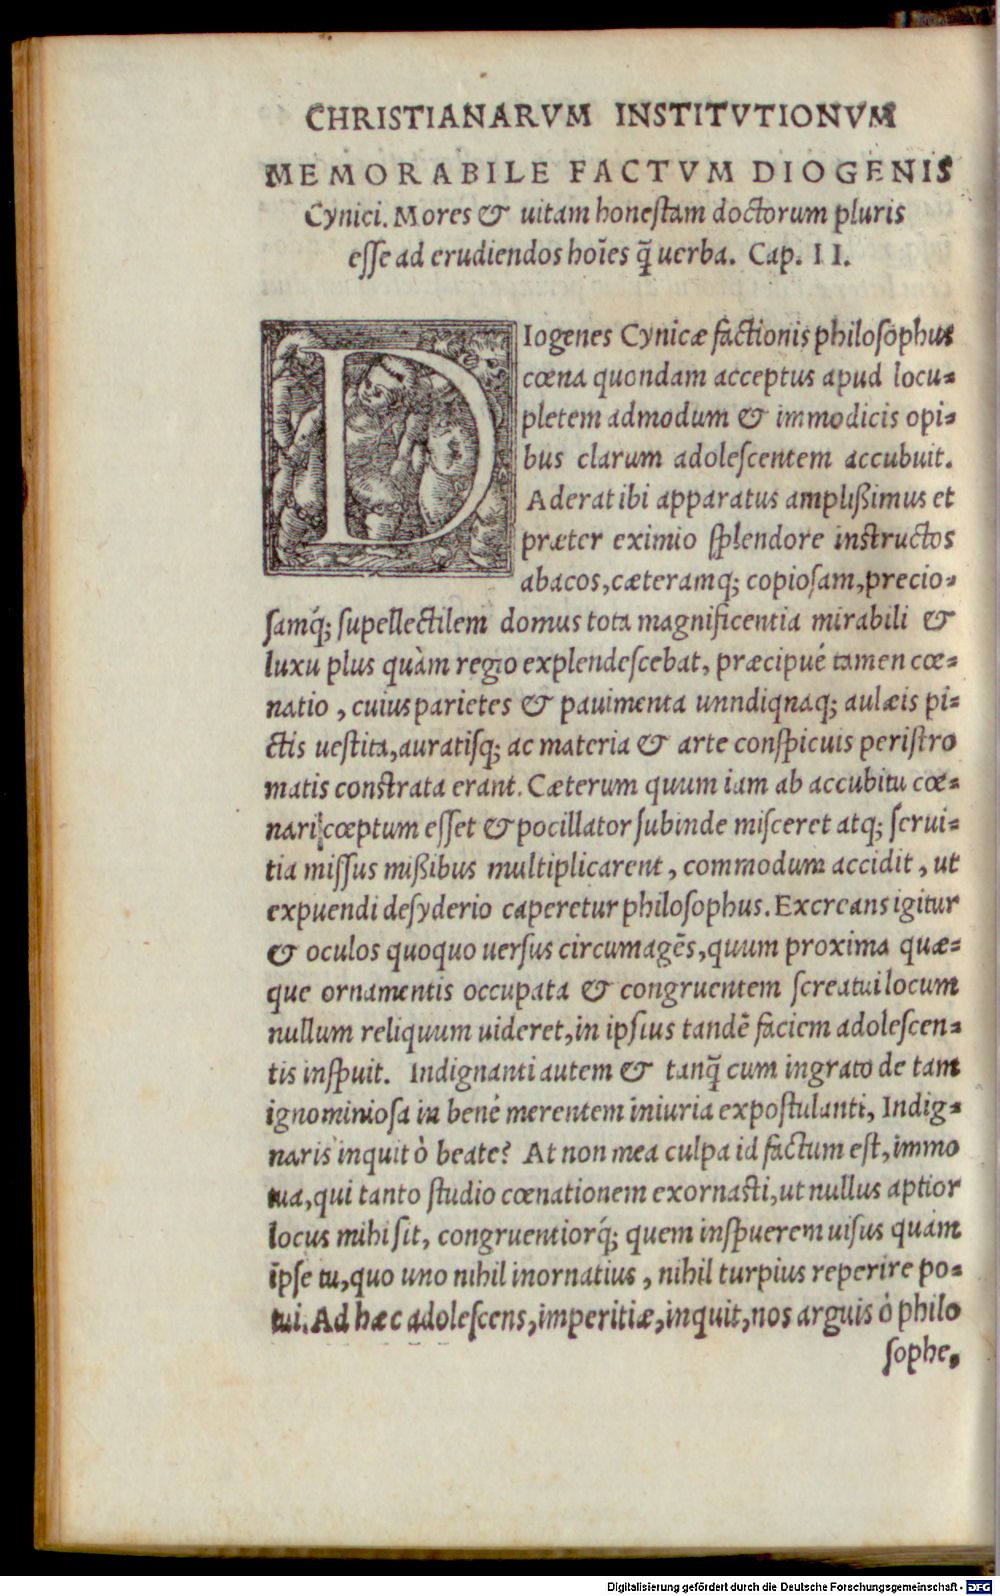 CHRISTIANARVM INSTITVTIONVM
MEMORABILE FACTVM DIOGENIS
Cynici. Mores & uitam honestam doctorum pluris
esse ad erudiendos hoīes q̃ uerba. Cap. II.
DIogenes Cynicæ factionis philosophus
cœna quondam acceptus apud locu-
pletem admodum & immodicis opi-
bus clarum adolescentem accubuit.
Aderat ibi apparatus amplißimus et
præter eximio splendore instructos
abacos, cæteramq; copiosam, precio-
samq́; supellectilem domus tota magnificentia mirabili &
luxu plus quàm regio explendescebat, præcipué tamen cœ-
natio, cuius parietes & pauimenta unndiqnaq; aulæis pi-
ctis uestita, auratisq; ac materia & arte conspicuis peristro
matis constrata erant. Cæterum quum iam ab accubitu cœ-
nari cœptum esset & pocillator subinde misceret atq; serui-
tia missus mißibus multiplicarent, commodum accidit, ut
expuendi desyderio caperetur philosophus. Excreans igitur
& oculos quoquo uersus circumagēs, quum proxima quæ-
que ornamentis occupata & congruentem screatui locum
nullum reliquum uideret, in ipsius tandē faciem adolescen-
tis inspuit. Indignanti autem & tanq̃ cum ingrato de tam
ignominiosa in bené merentem iniuria expostulanti, Indig-
naris inquit ò beate? At non mea culpa id factum est, immo
tua, qui tanto studio cœnationem exornasti, ut nullus aptior
locus mihi sit, congruentiorq́; quem inspuerem uisus quàm
ipse tu, quo uno nihil inornatius, nihil turpius reperire po-
tui. Ad hæc adolescens, imperitiæ, inquit, nos arguis ò philo
sophe,
Digitalisierung gefördert durch die Deutsche Forschungsgemeinschaft - DFG